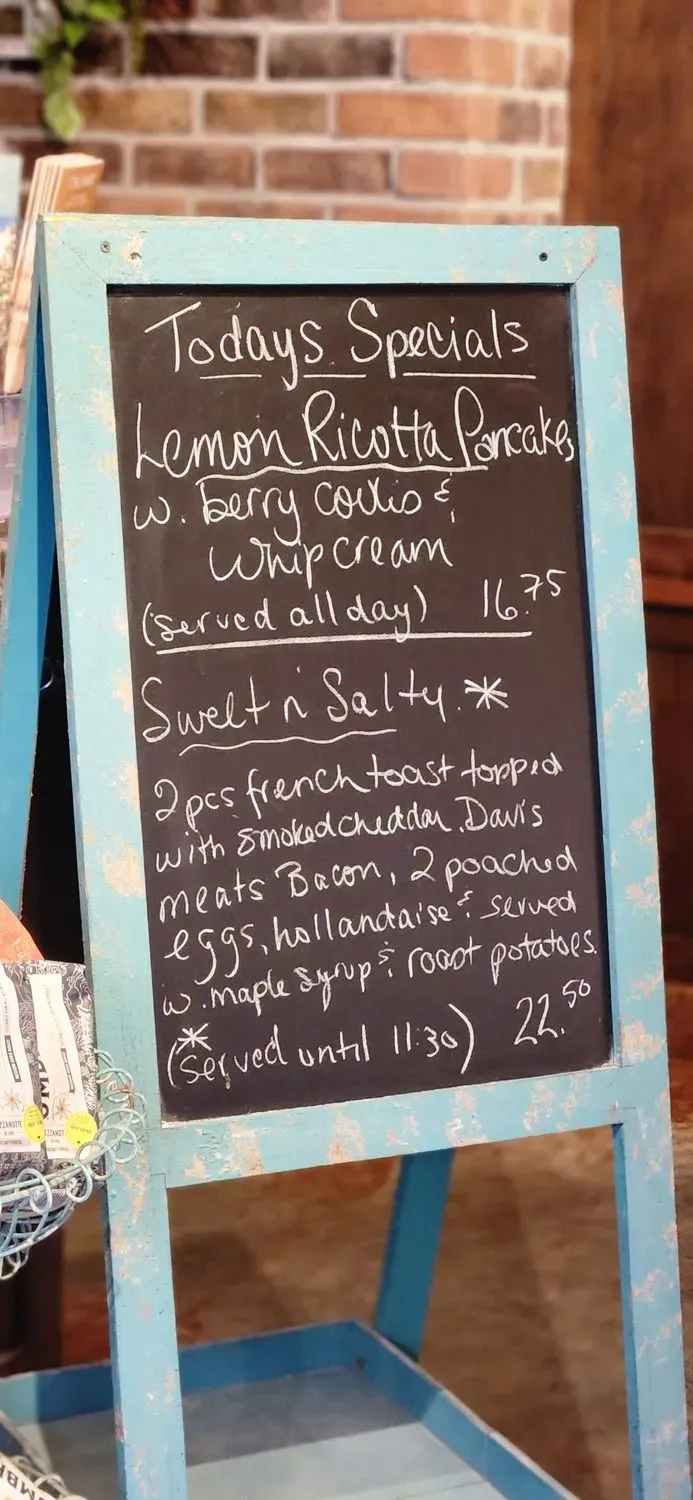 Todays Specials
Lemon Ricotta Pancakes
w. berry coulis &
whip cream
(served all day) 16.75
Sweet n' Salty. *
2 pcs french toast topped
with smoked cheddar, Davis
meats Bacon, 2 poached
eggs, hollandaise & served
w. maple syrup & roast potatoes.
*
(served until 11:30) 22.50